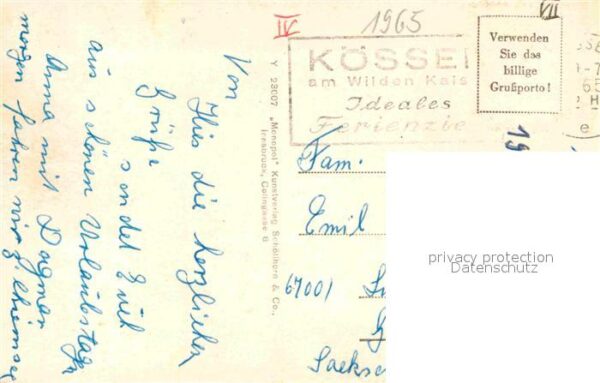 IV
1965
VII
KÖSSE
am Wilden Kais
Ideales
Ferienzie
Verwenden
Sie das
billige
Grußporto!
65
H
e
19
Von
Hies die herzlichen
Grüße
sendet Euch
aus schönen Urlaubstagen
Anna mit Dagmar
morgen fahren wir z. Chiemsee
Y 23007 „Monopol" Kunstverlag Schöllhorn & Co.,
Innsbruck, Colingasse 6
Fam.
Emil
67001
Sachse
privacy protection
Datenschutz